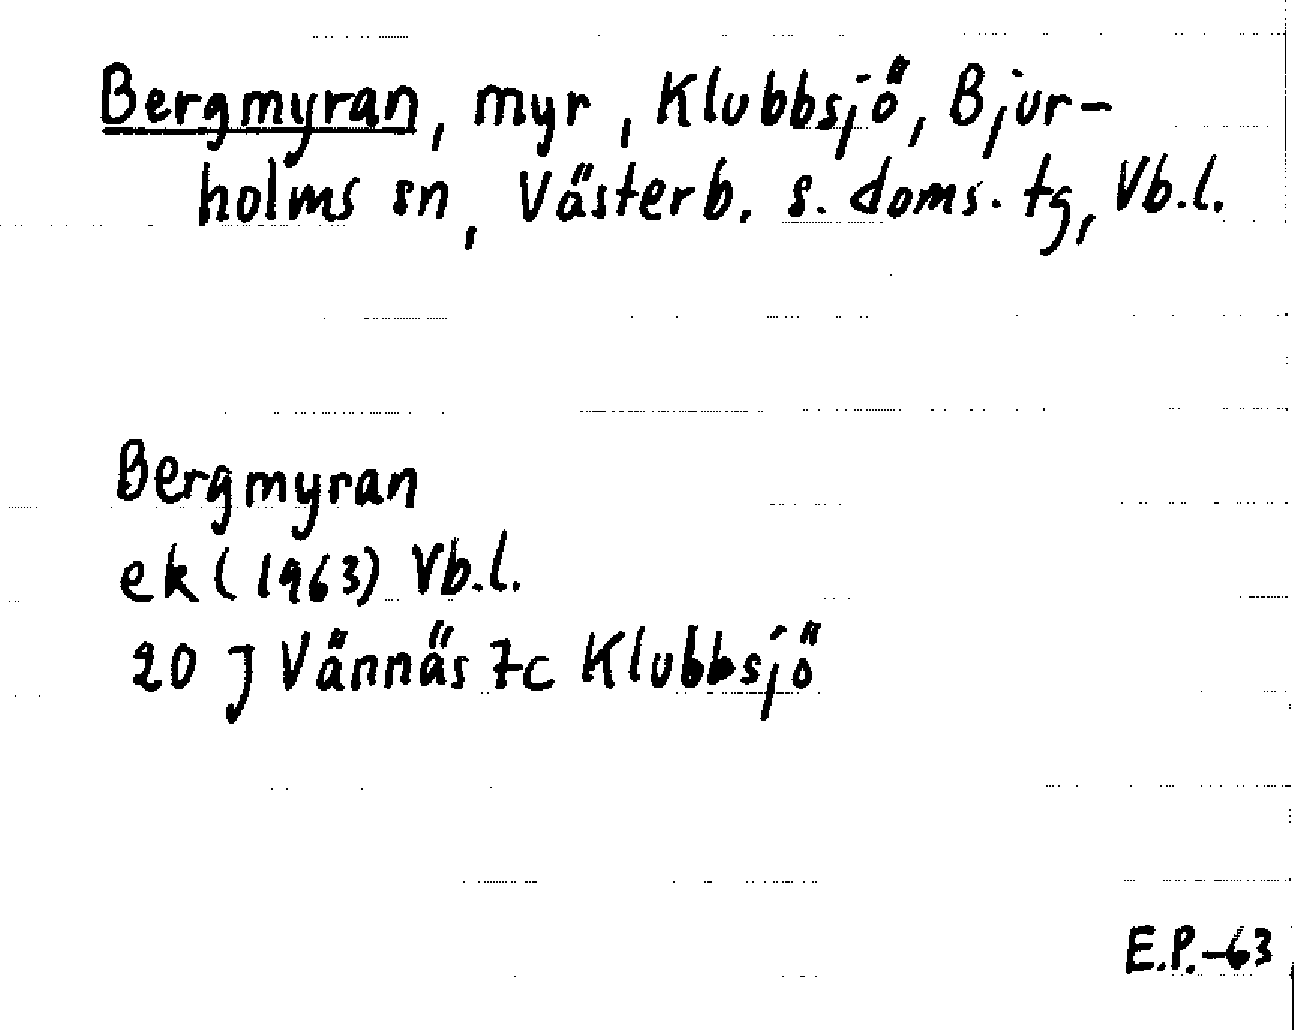 Bergmyran, myr, Klubbsjö, Bjur-
holms sn, Västerb. s. doms. tg, Vb.l.
Bergmyran
ek (1963) Vb.l.
20 J Vännäs 7c Klubbsjö
E.P.-63